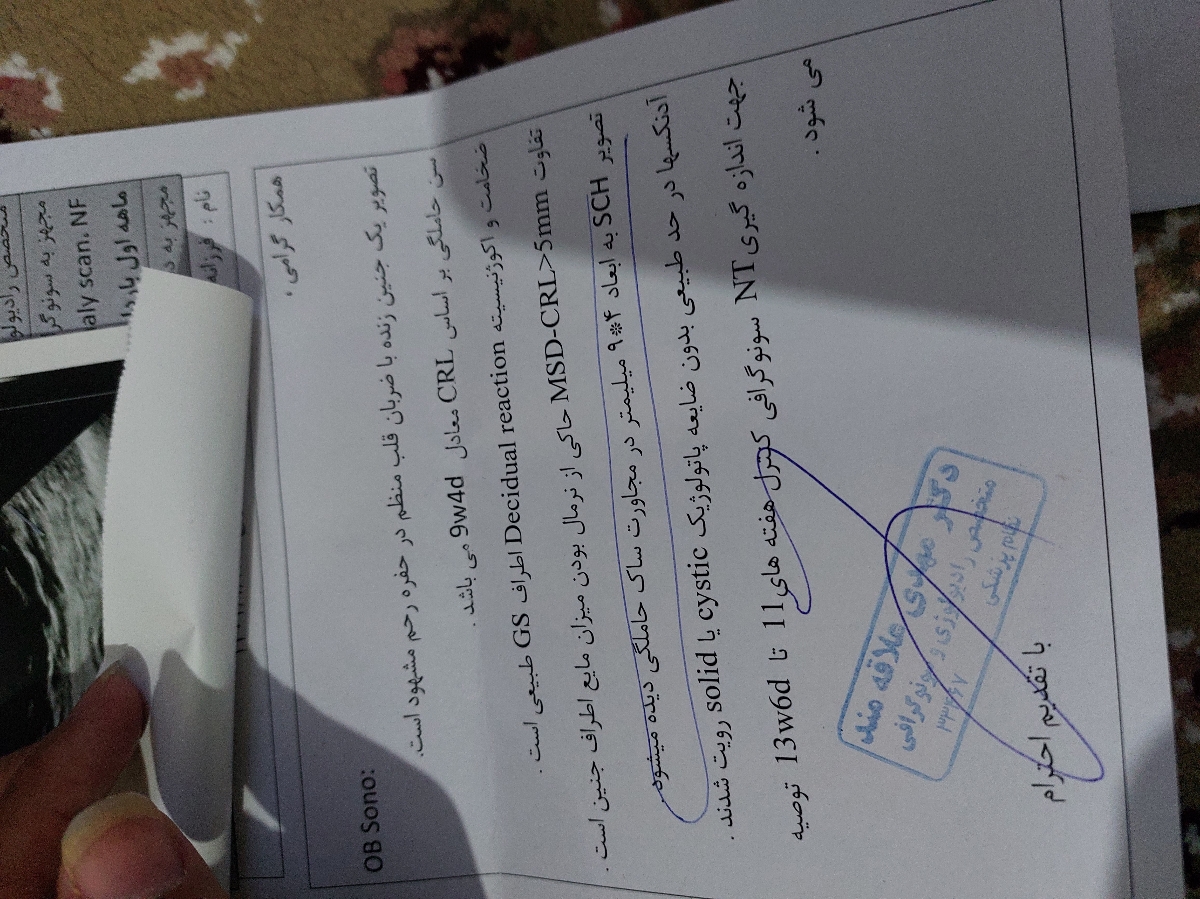 متخصص رادیولو
مجهز به سونوگر
aly scan. NF
ماهه اول بارد
مجهز به د
نام : فرزانه
همکار گرامی ،
OB Sono:
تصویر یک جنین زنده با ضربان قلب منظم در حفره رحم مشهود است.
سن حاملگی بر اساس CRL معادل 9w4d می باشد .
ضخامت و اکوژنیسیته Decidual reaction اطراف GS طبیعی است .
تفاوت MSD-CRL>5mm حاکی از نرمال بودن میزان مایع اطراف جنین است .
تصویر SCH به ابعاد ۴*۹ میلیمتر در مجاورت ساک حاملگی دیده میشود.
آدنکسها در حد طبیعی بدون ضایعه پاتولوژیک cystic یا solid رویت شدند .
جهت اندازه گیری NT سونوگرافی کنترل هفته های 11 تا 13w6d توصیه
می شود .
دکتر مهدی علاقه مند
متخصص رادیولوژی و سونوگرافی
نظام پزشکی
با تقدیم احترام